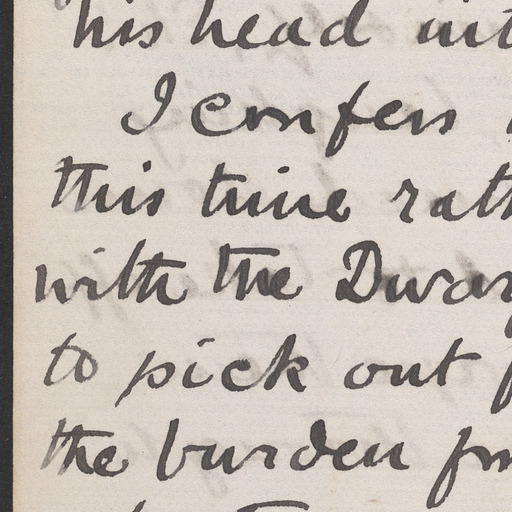 his head int
I confess
this time rath
with the Dwar
to pick out
the burden